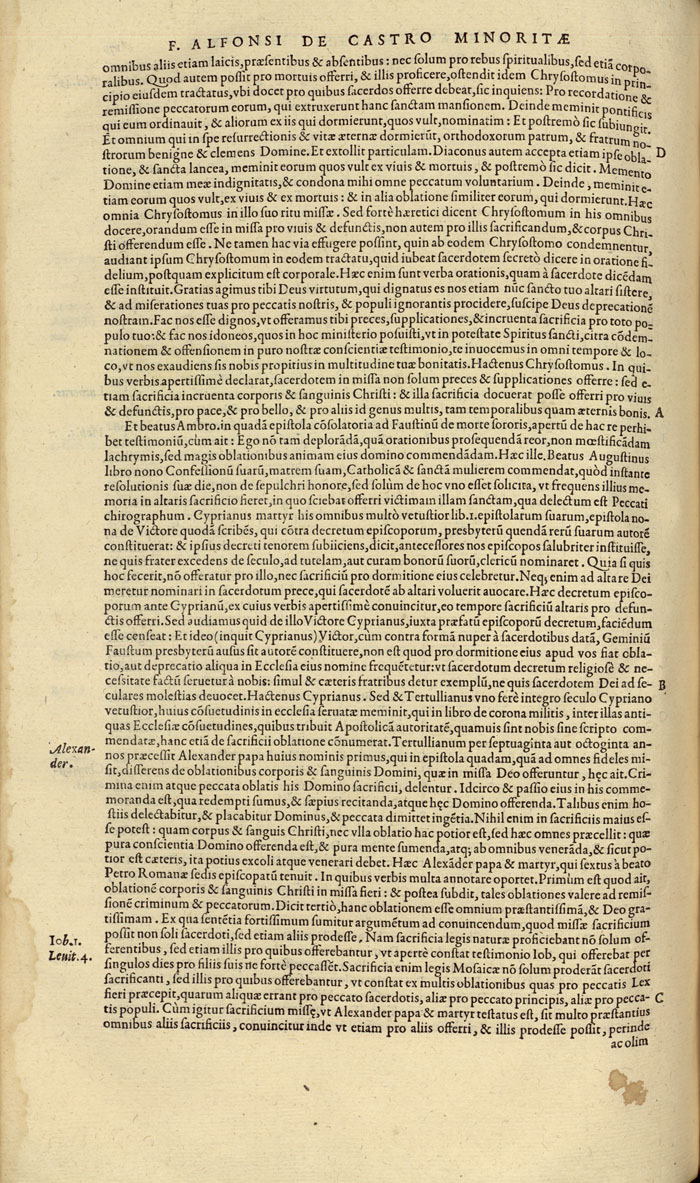 F. ALFONSI DE CASTRO MINORITÆ
omnibus aliis etiam laicis, præsentibus & absentibus : nec solum pro rebus spiritualibus, sed etiā corpo-
ralibus. Quod autem possit pro mortuis offerri, & illis proficere, ostendit idem Chrysostomus in prin-
cipio eiusdem tractatus, vbi docet pro quibus sacerdos offerre debeat, sic inquiens: Pro recordatione &
remissione peccatorum eorum, qui extruxerunt hanc sanctam mansionem. Deinde meminit pontificis
qui eum ordinauit, & aliorum ex iis qui dormierunt, quos vult, nominatim : Et postremò sic subiungit.
Et omnium qui in spe resurrectionis & vitæ æternæ dormierūt, orthodoxorum patrum, & fratrum no-
strorum benigne & clemens Domine. Et extollit particulam. Diaconus autem accepta etiam ipse obla- D
tione, & sancta lancea, meminit eorum quos vult ex viuis & mortuis, & postremò sic dicit. Memento
Domine etiam meæ indignitatis, & condona mihi omne peccatum voluntarium . Deinde , meminit e-
tiam eorum quos vult, ex viuis & ex mortuis : & in alia oblatione similiter eorum, qui dormierunt. Hæc
omnia Chrysostomus in illo suo ritu missæ . Sed fortè hæretici dicent Chrysostomum in his omnibus
docere, orandum esse in missa pro viuis & defunctis, non autem pro illis sacrificandum, & corpus Chri-
sti offerendum esse . Ne tamen hac via effugere possint, quin ab eodem Chrysostomo condemnentur,
audiant ipsum Chrysostomum in eodem tractatu, quid iubeat sacerdotem secretò dicere in oratione fi-
delium, postquam explicitum est corporale. Hæc enim sunt verba orationis, quam à sacerdote dicēdam
esse instituit. Gratias agimus tibi Deus virtutum, qui dignatus es nos etiam nūc sancto tuo altari sistere,
& ad miserationes tuas pro peccatis nostris, & populi ignorantis procidere, suscipe Deus deprecationē
nostram. Fac nos esse dignos, vt offeramus tibi preces, supplicationes, & incruenta sacrificia pro toto po-
pulo tuo: & fac nos idoneos, quos in hoc ministerio posuisti, vt in potestate Spiritus sancti, citra cōdem-
nationem & offensionem in puro nostræ conscientiæ testimonio, te inuocemus in omni tempore & lo-
co, vt nos exaudiens sis nobis propitius in multitudine tuæ bonitatis. Hactenus Chrysostomus . In qui-
bus verbis apertissimè declarat, sacerdotem in missa non solum preces & supplicationes offerre : sed e-
tiam sacrificia incruenta corporis & sanguinis Christi : & illa sacrificia docuerat posse offerri pro viuis
& defunctis, pro pace, & pro bello, & pro aliis id genus multis, tam temporalibus quam æternis bonis. A
Et beatus Ambro. in quadā epistola cōsolatoria ad Faustinū de morte sororis, apertū de hac re perhi-
bet testimoniū, cum ait : Ego nō tam deplorādā, quā orationibus prosequendā reor, non mœstificādam
lachrymis, sed magis oblationibus animam eius domino commendādam. Hæc ille. Beatus Augustinus
libro nono Confessionū suarū, matrem suam, Catholicā & sanctā mulierem commendat, quòd instante
resolutionis suæ die, non de sepulchri honore, sed solùm de hoc vno esset solicita, vt frequens illius me-
moria in altaris sacrificio fieret, in quo sciebat offerri victimam illam sanctam, qua delectum est Peccati
chirographum . Cyprianus martyr his omnibus multò vetustior lib. 1. epistolarum suarum, epistola no-
na de Victore quodā scribēs, qui cōtra decretum episcoporum, presbyterū quendā rerū suarum autorē
constituerat: & ipsius decreti tenorem subiiciens, dicit, antecessores nos episcopos salubriter instituisse,
ne quis frater excedens de seculo, ad tutelam, aut curam bonorū suorū, clericū nominaret . Quia si quis
hoc fecerit, nō offeratur pro illo, nec sacrificiū pro dormitione eius celebretur. Neq; enim ad altare Dei
meretur nominari in sacerdotum prece, qui sacerdotē ab altari voluerit auocare. Hæc decretum episco-
porum ante Cyprianū, ex cuius verbis apertissimè conuincitur, eo tempore sacrificiū altaris pro defun-
ctis offerri. Sed audiamus quid de illo Victore Cyprianus, iuxta præfatū episcoporū decretum, faciēdum
esse censeat : Et ideo (inquit Cyprianus) Victor, cùm contra formā nuper à sacerdotibus datā, Geminiū
Faustum presbyterū ausus sit autorē constituere, non est quod pro dormitione eius apud vos fiat obla-
tio, aut deprecatio aliqua in Ecclesia eius nomine frequētetur: vt sacerdotum decretum religiosè & ne-
cessitate factū seruetur à nobis: simul & cæteris fratribus detur exemplū, ne quis sacerdotem Dei ad se- B
culares molestias deuocet. Hactenus Cyprianus . Sed & Tertullianus vno ferè integro seculo Cypriano
vetustior, huius cōsuetudinis in ecclesia seruatæ meminit, qui in libro de corona militis , inter illas anti-
quas Ecclesiæ cōsuetudines, quibus tribuit Apostolicā autoritatē, quamuis sint nobis sine scripto com-
mendatæ, hanc etiā de sacrificii oblatione cōnumerat. Tertullianum per septuaginta aut octoginta an-
Alexan-
der.
nos præcessit Alexander papa huius nominis primus, qui in epistola quadam, quā ad omnes fideles mi-
sit, disserens de oblationibus corporis & sanguinis Domini, quæ in missa Deo offeruntur , hęc ait. Cri-
mina enim atque peccata oblatis his Domino sacrificii, delentur . Idcirco & passio eius in his comme-
moranda est, qua redempti sumus, & sæpius recitanda, atque hęc Domino offerenda. Talibus enim ho-
stiis delectabitur, & placabitur Dominus, & peccata dimittet ingētia. Nihil enim in sacrificiis maius es-
se potest : quam corpus & sanguis Christi, nec vlla oblatio hac potior est, sed hæc omnes præcellit : quæ
pura conscientia Domino offerenda est, & pura mente sumenda, atq; ab omnibus venerāda, & sicut po-
tior est cæteris, ita potius excoli atque venerari debet. Hæc Alexāder papa & martyr, qui sextus à beato
Petro Romanæ sedis episcopatū tenuit . In quibus verbis multa annotare oportet. Primùm est quod ait,
oblationē corporis & sanguinis Christi in missa fieri : & postea subdit, tales oblationes valere ad remis-
sionē criminum & peccatorum. Dicit tertiò, hanc oblationem esse omnium præstantissimā, & Deo gra-
tissimam . Ex qua sentētia fortissimum sumitur argumētum ad conuincendum, quod missæ sacrificium
Iob. 1.
possit non soli sacerdoti, sed etiam aliis prodesse . Nam sacrificia legis naturæ proficiebant nō solum of-
Leuit. 4.
ferentibus , sed etiam illis pro quibus offerebantur , vt apertè constat testimonio Iob, qui offerebat per
singulos dies pro filiis suis ne fortè peccassēt. Sacrificia enim legis Mosaicæ nō solum proderāt sacerdoti
sacrificanti , sed illis pro quibus offerebantur , vt constat ex multis oblationibus quas pro peccatis Lex
fieri præcepit, quarum aliquæ errant pro peccato sacerdotis, aliæ pro peccato principis, aliæ pro pecca- C
tis populi. Cùm igitur sacrificium missę, vt Alexander papa & martyr testatus est, sit multo præstantius
omnibus aliis sacrificiis , conuincitur inde vt etiam pro aliis offerri , & illis prodesse possit, perinde
ac olim